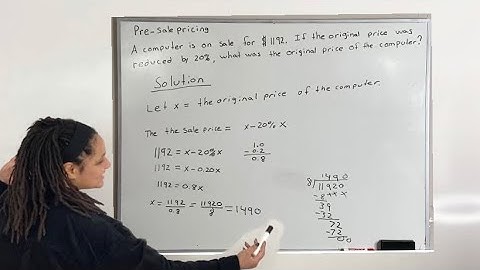 Pre-sale pricing
A computer is on sale for $1192. If the original price was
reduced by 20%, what was the original price of the computer?
Solution
Let x = the original price of the computer.
The the sale price = x-20% x
1192 = x-20%x
1192 = x-0.20x
1192 = 0.8x
x = 1192/0.8 = 11920/8 = 1490
1.0
-0.2
0.8
1490
8 11920
-8xxx
39
-32
72
-72
00